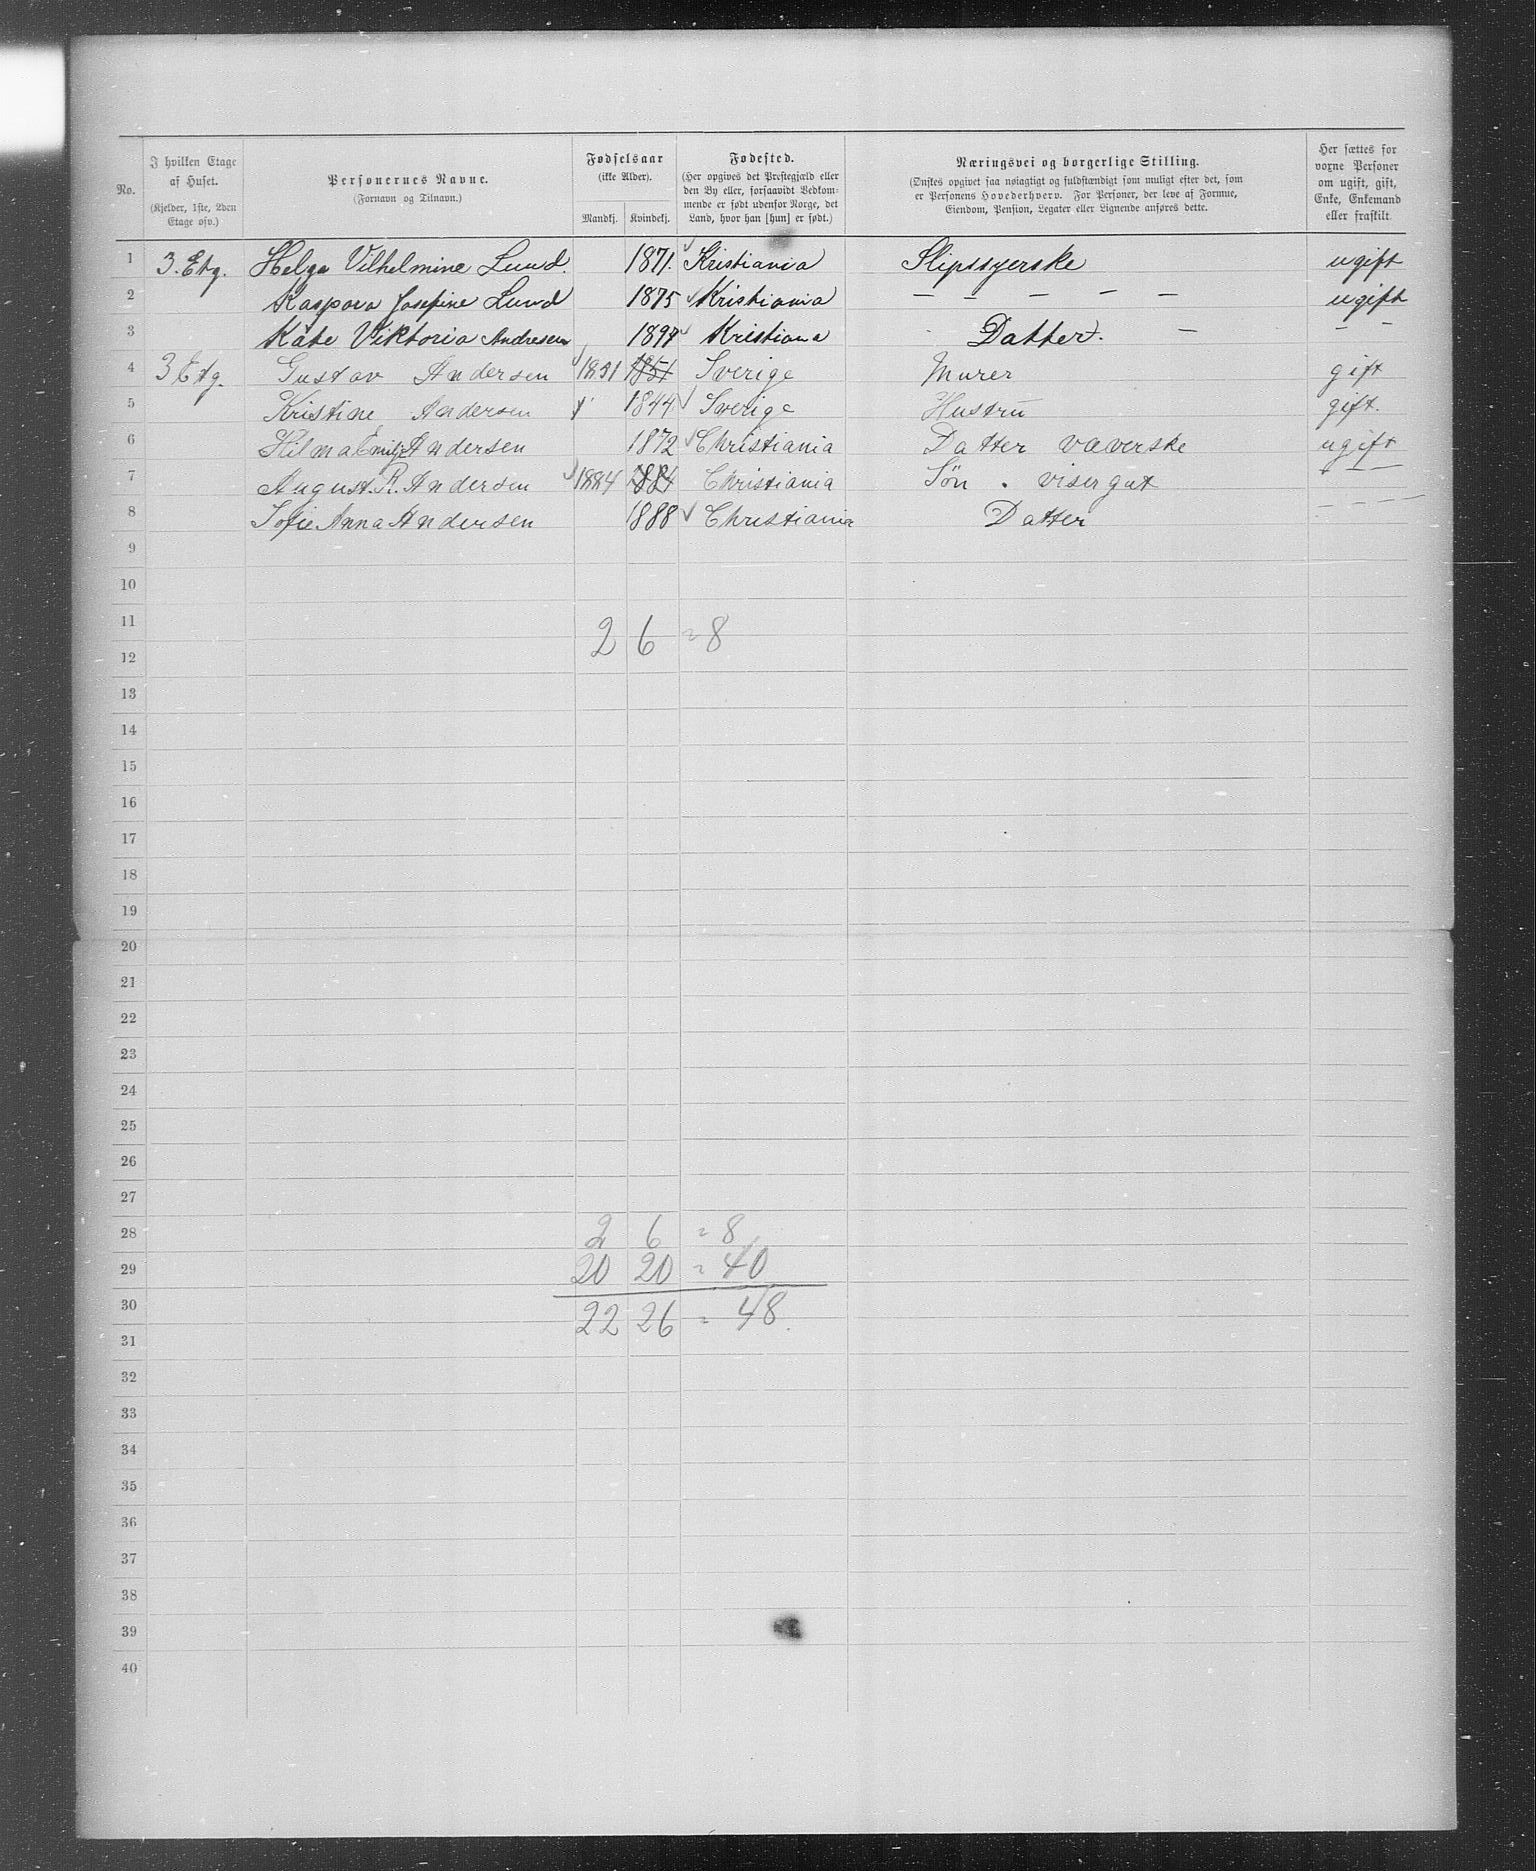 No. | I hvilken Etage af Huset. (Kjelder, 1ste, 2den Etage osv.) | Personernes Navne. (Fornavn og Tilnavn.) | Fødselsaar (ikke Alder). Mandkj. | Kvindekj. | Fødested. (Her opgives det Prestegjæld eller den By eller, forsaavidt Vedkommende er født udenfor Norge, det Land, hvor han [hun] er født.) | Næringsvei og borgerlige Stilling. (Ønskes opgivet saa nøiagtigt og fuldstændigt som muligt efter det, som er Personens Hovederhverv. For Personer, der leve af Formue, Eiendom, Pension, Legater eller Lignende anføres dette.) | Her sættes for voxne Personer om ugift, gift, Enke, Enkemand eller fraskilt.
1 3. Etg. Helga Vilhelmine Lund. 1871. Kristiania Slipssyerske ugift
2 Kaspara Josefine Lund 1875 Kristiania — — — — — ugift
3 Käte Viktoria Andresen 1897 Kristiana Datter. — — —
4 3 Etg. Gustav Andersen 1851 1851 Sverige Murer gift
5 Kristine Andersen 1844 Sverige Hustru gift.
6 Hilma Emilje Andersen 1872 Christiania Datter væverske ugift
7 August. R. Andersen 1884 1884 Christiania Søn . visergut — — —
8 Sofie Anna Andersen 1888 Christiania Datter — — — —
9
10
11 2 6 = 8
12
13
14
15
16
17
18
19
20
21
22
23
24
25
26
27
28 2 6 = 8
29 20 20 = 40
30 22 26 = 48.
31
32
33
34
35
36
37
38
39
40